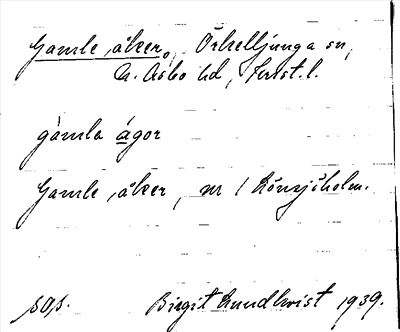 Gamle åker, Örkelljunga sn,
N. Åsbo hd, Krist. l.
gàmla ágor
Gamle åker, nr 1 Rönnjöholm.
søs.
Birgit Lundkvist 1939.